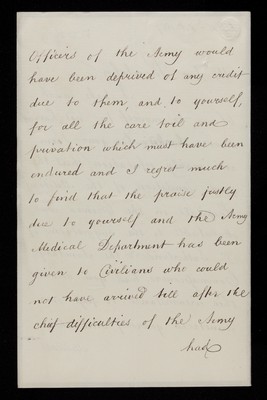 Officers of the Army would
have been deprived of any credit
due to them, and, to yourself,
for all the care toil and
privation which must have been
endured and I regret much
to find that the praise justly
due to yourself and the Army
Medical Department has been
given to Civilians who could
not have arrived till after the
chief difficulties of the Army
had